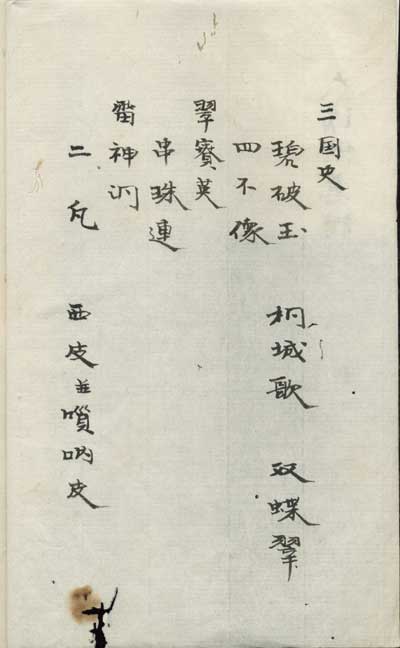 三国史
碧破玉 桐城歌 双蝶翠
四不像
翠賽英
串珠連
雷神洞
二凡 西皮並嗩吶皮